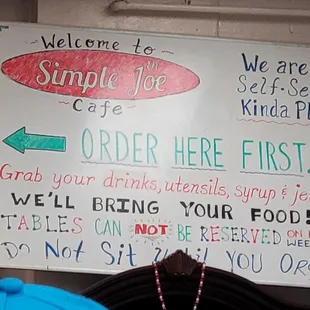 Welcome to
Simple Joe
Cafe
We are
Self-Se
Kinda Pl
ORDER HERE FIRST.
Grab your drinks, utensils, syrup & je
WE'LL BRING YOUR FOOD!
TABLES CAN NOT BE RESERVED ON
WEE
DO NOT SIT Until YOU OR